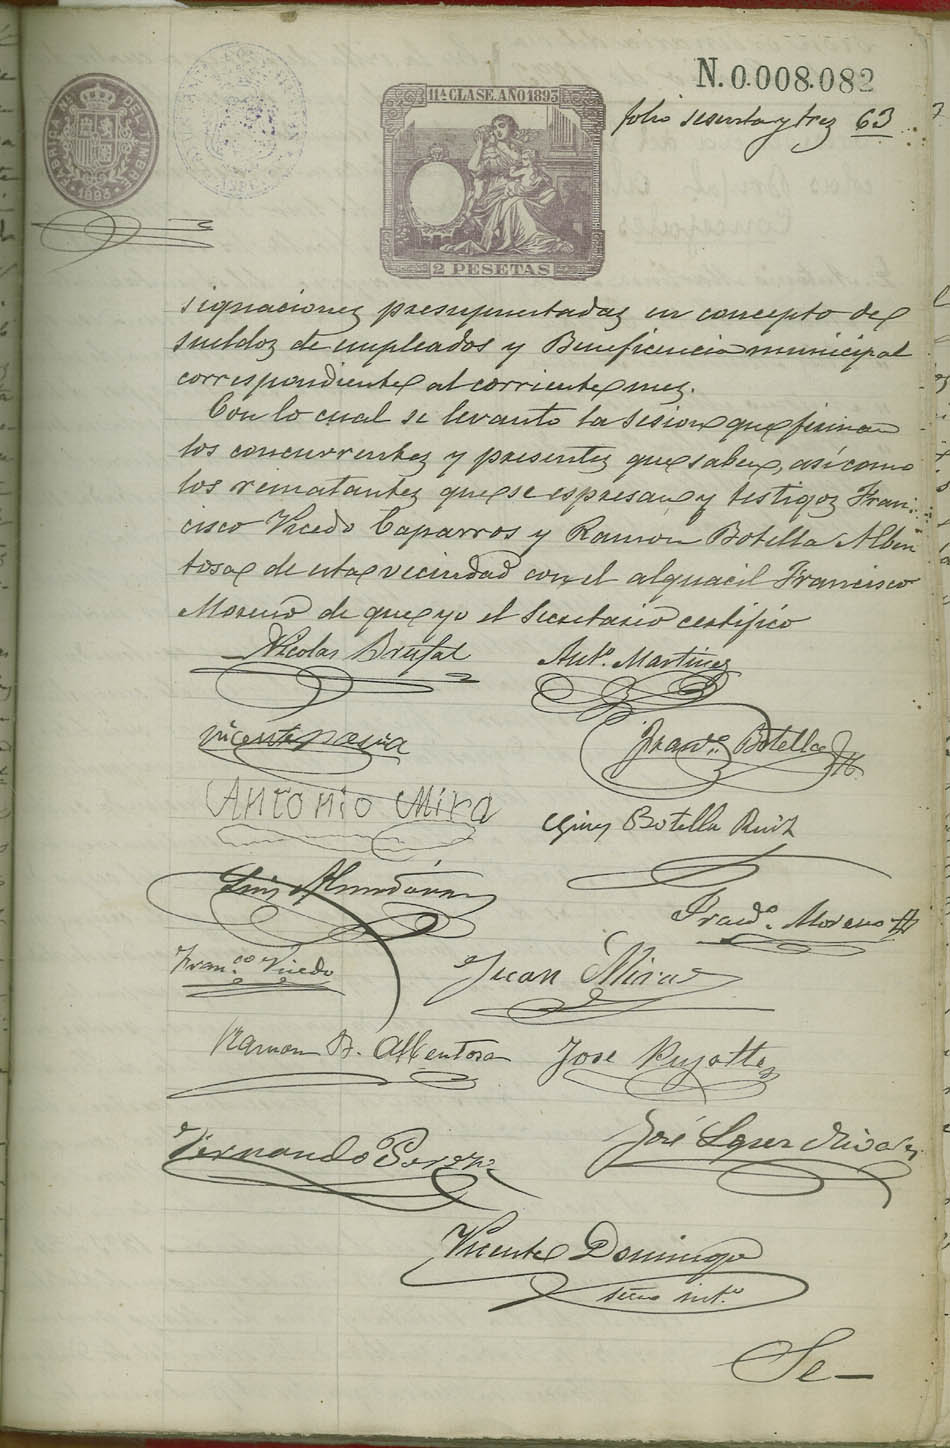 N. 0.008.082
11ª CLASE. AÑO 1893
FABRICA NAL. DEL TIMBRE
1893
folio sesenta y trez 63
2 PESETAS
signacionez presupuestadaz en concepto de
sueldoz de empleados y Beneficencia municipal
correspondiente al corriente mez.
Con lo cual se levanto la sesion que firman
los concurrentez y presentez que saben, así como
los rematantez que se espresan y testigoz Fran-
cisco Vicedo Caparros y Ramon Botella Alben
tosa de esta vecindad con el alguacil Francisco
Moreno de que yo el Secretario certifico
Nicolas Brufal
Antº. Martinez
Vicente
Francº. Botella
Antonio Mira
Gines Botella Ruiz
Luis Almodóvar
Francº. Moreno
Franco Vicedo
Juan Mira
Ramon B. Albentosa
Jose Pujalte
Fernando Perez
José Lopez
Vicente Domingo
Srio intº.
Se—